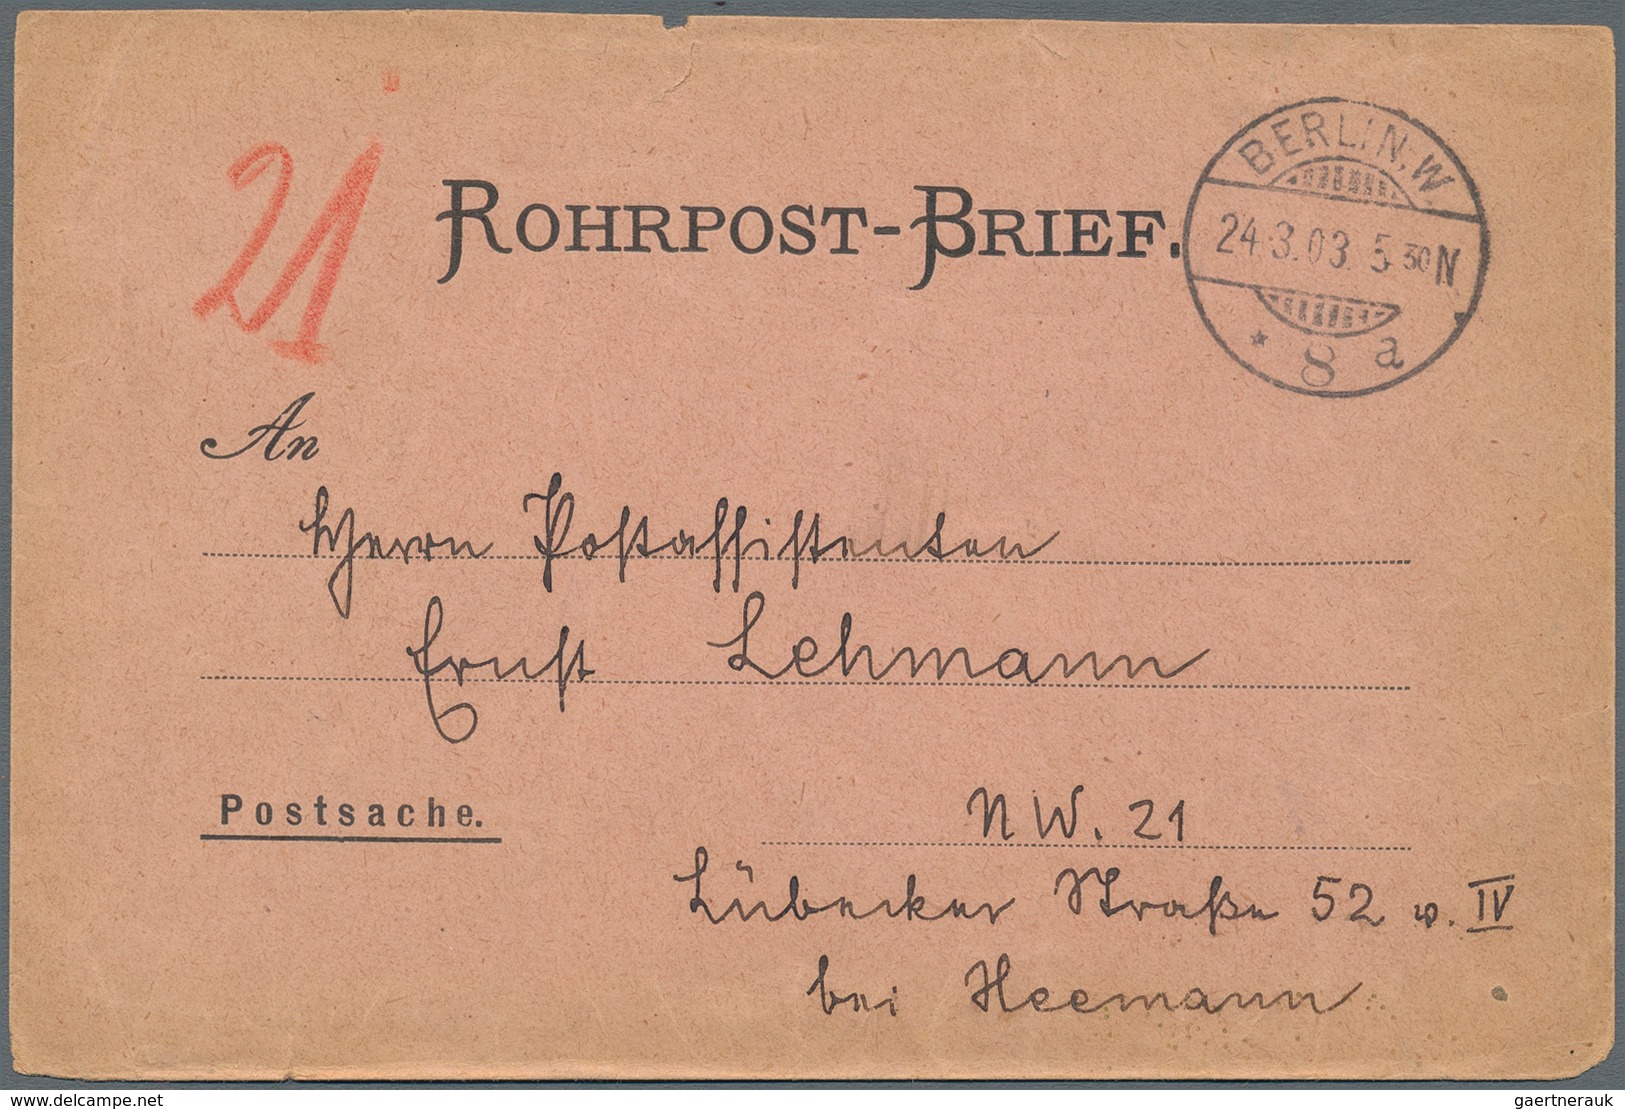 21
ROHRPOST-BRIEF.
BERLIN.W.
24.3.03. 5 30 N
* 8 a
An
Herrn Postassistenten
Ernst Lehmann
Postsache.
NW. 21
Lübecker Straße 52 v. IV
bei Heemann
www.delcampe.net
gaertnerauk